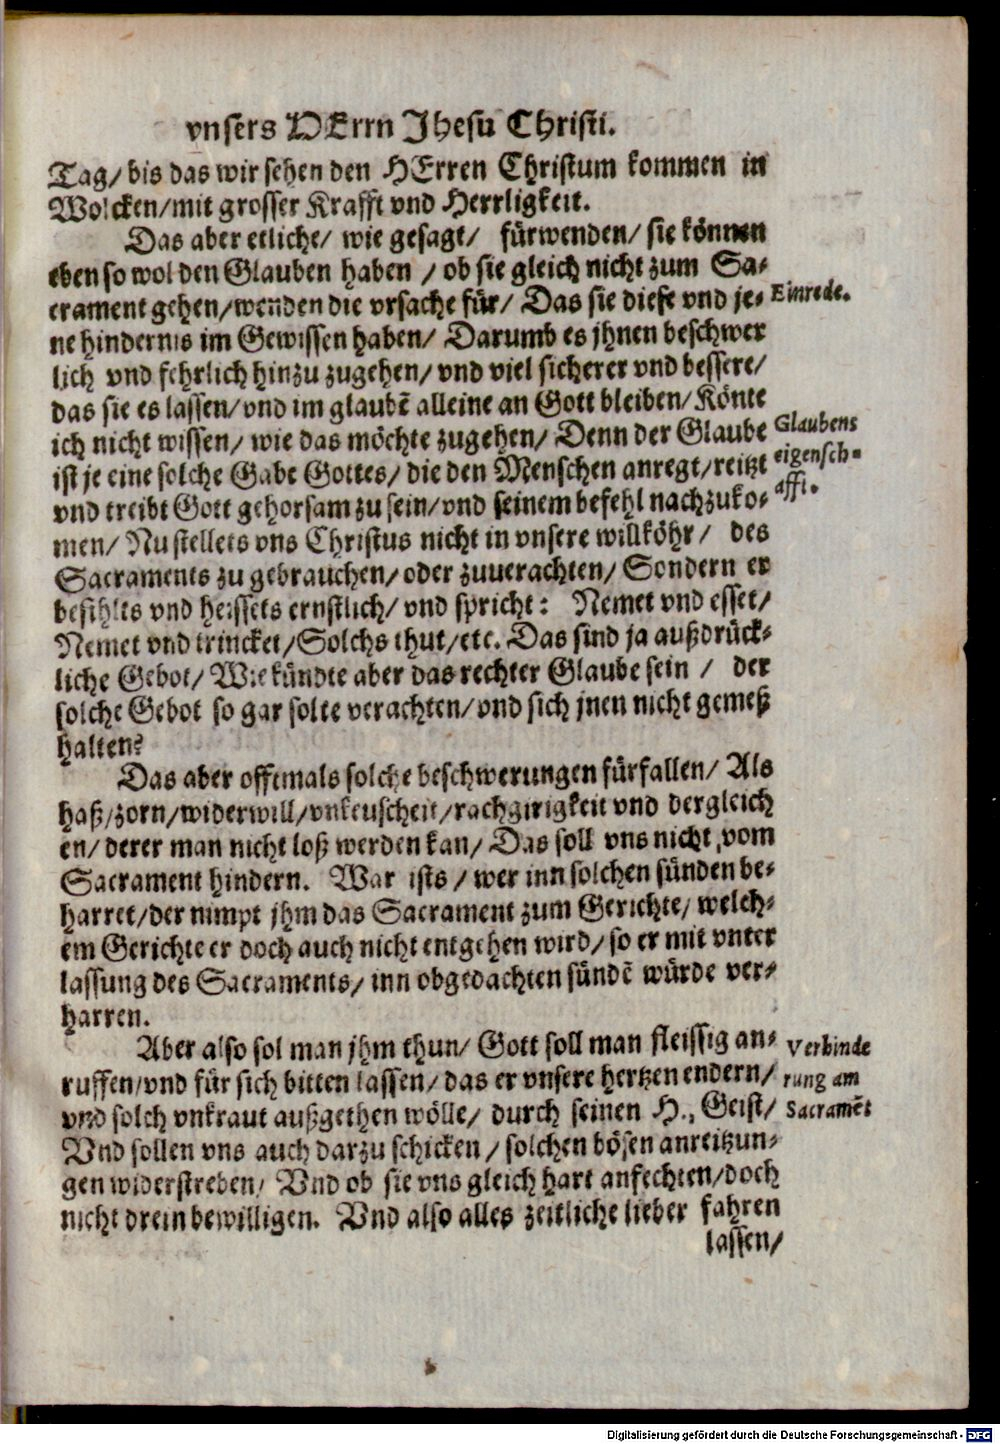 vnsers HErrn Jhesu Christi.
Tag/ bis das wir sehen den HErren Christum kommen in
Wolcken/mit grosser Krafft vnd Herrligkeit.
Das aber etliche/ wie gesagt/ fürwenden/ sie können
eben so wol den Glauben haben / ob sie gleich nicht zum Sa-
crament gehen/wenden die vrsache für/ Das sie diese vnd je-
Einrede.
ne hindernis im Gewissen haben/ Darumb es jhnen beschwer
lich vnd fehrlich hinzu zugehen/ vnd viel sicherer vnd bessere/
das sie es lassen/vnd im glaubē alleine an Gott bleiben/ Könte
ich nicht wissen/ wie das möchte zugehen/ Denn der Glaube
Glaubens
ist je eine solche Gabe Gottes/ die den Menschen anregt/reitzt
eigensch-
vnd treibt Gott gehorsam zu sein/vnd seinem befehl nachzuko-
afft.
men/ Nu stellets vns Christus nicht in vnsere willköhr/ des
Sacraments zu gebrauchen/oder zuuerachten/ Sondern er
besihlts vnd heissets ernstlich/ vnd spricht: Nemet vnd esset/
Nemet vnd trincket/Solchs thut/etc. Das sind ja außdrück-
liche Gebot/ Wie kündte aber das rechter Glaube sein / der
solche Gebot so gar solte verachten/vnd sich jnen nicht gemeß
halten?
Das aber offtmals solche beschwerungen fürfallen/ Als
haß/zorn/widerwill/vnkeuscheit/rachgirigkeit vnd dergleich
en/ derer man nicht loß werden kan/ Das soll vns nicht vom
Sacrament hindern. War ists / wer inn solchen sünden be-
harret/der nimpt jhm das Sacrament zum Gerichte/ welch-
em Gerichte er doch auch nicht entgehen wird/ so er mit vnter
lassung des Sacraments/ inn obgedachten sündē würde ver-
harren.
Aber also sol man jhm thun/ Gott soll man fleissig an-
Verhinde
ruffen/vnd für sich bitten lassen/ das er vnsere hertzen endern/
rung am
vnd solch vnkraut außgethen wölle/ durch seinen H., Geist/
Sacramēt
Vnd sollen vns auch darzu schicken / solchen bösen anreitzun-
gen widerstreben/ Vnd ob sie vns gleich hart anfechten/doch
nicht drein bewilligen. Vnd also alles zeitliche lieber fahren
lassen/
Digitalisierung gefördert durch die Deutsche Forschungsgemeinschaft - DFG